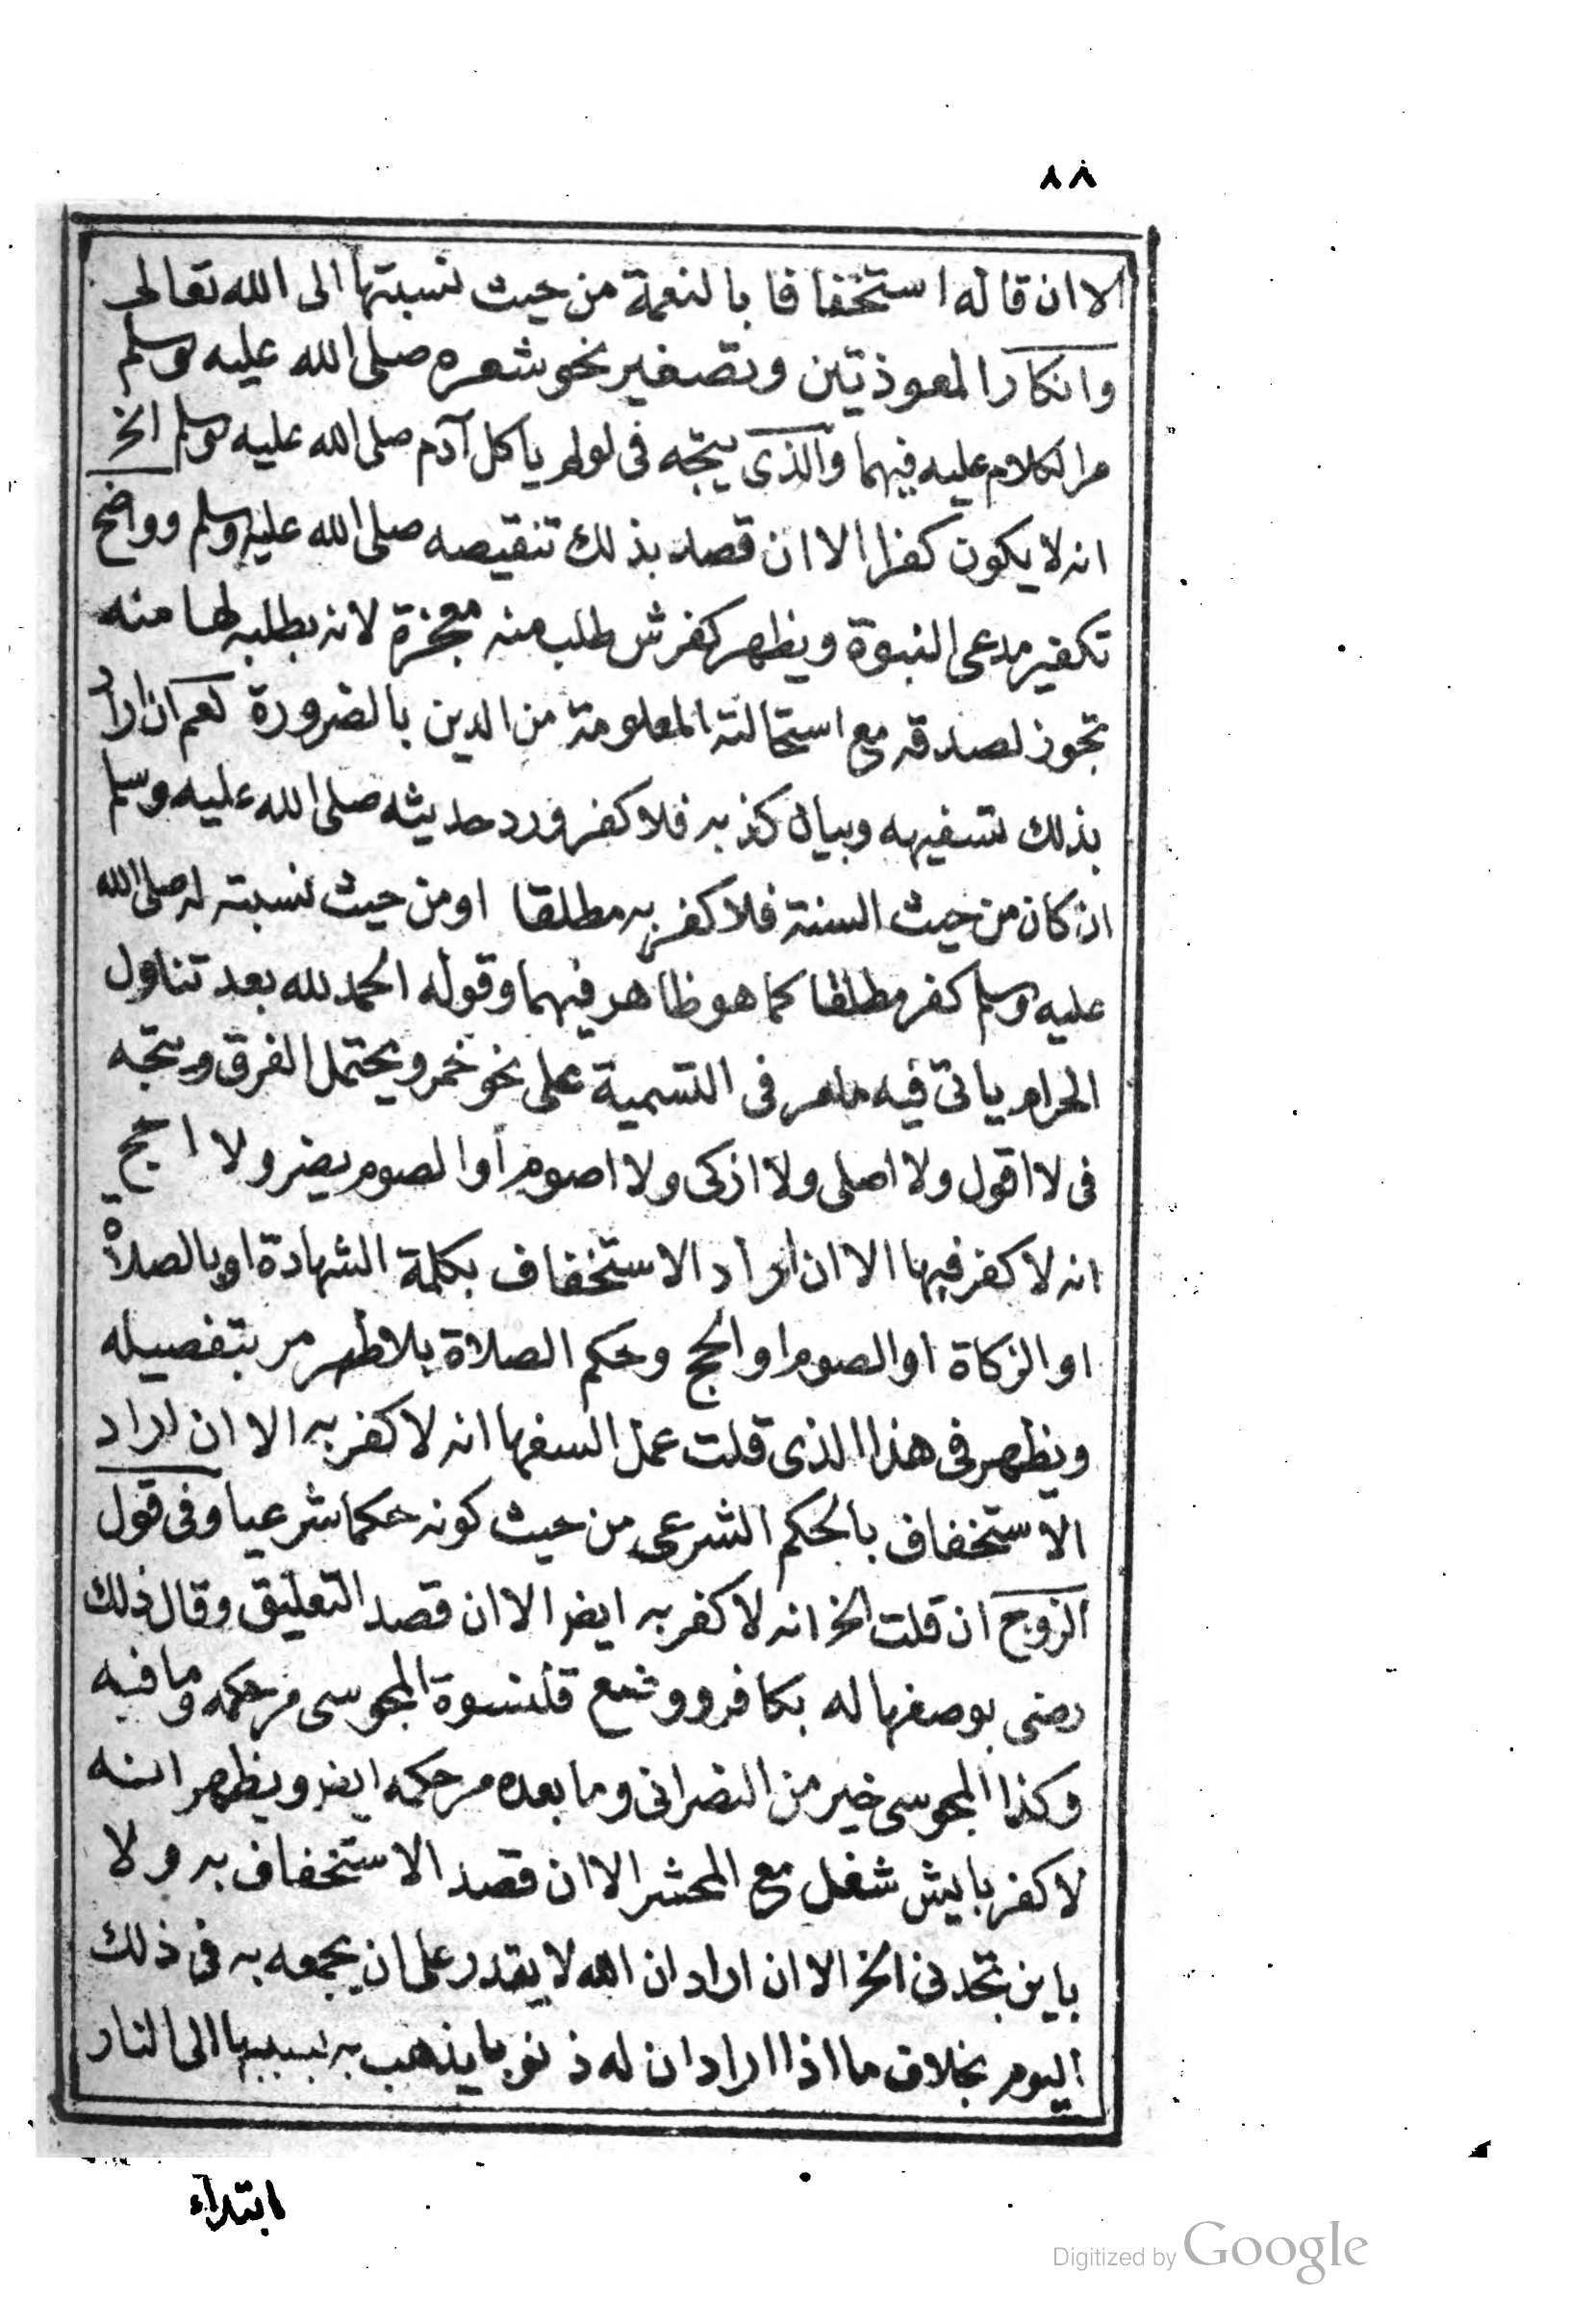 ٨٨
الا ان قاله استخفافا بالنعمة من حيث نسبتها الى الله تعالى
وانكار المعوذتين وتصغير نحو شعره صلى الله عليه وسلم
مر الكلام عليه فيهما والذى يتجه فى لو لم يأكل آدم صلى الله عليه وسلم الخ
انه لا يكون كفرا الا ان قصد بذلك تنقيصه صلى الله عليه وسلم وواضح
تكفير مدعى النبوة ويظهر كفر من طلب منه معجزة لانه بطلبه لها منه
تجوز لصدقه مع استحالته المعلومة من الدين بالضرورة نعم ان اراد
بذلك تسفيهه وبيان كذبه فلا كفر ورد حديثه صلى الله عليه وسلم
ان كان من حيث السنة فلا كفر به مطلقا او من حيث نسبته له صلى الله
عليه وسلم كفر مطلقا كما هو ظاهر فيهما وقوله الحمد لله بعد تناول
الحرام ياتى فيه مامر فى التسمية على نحو خمر ويحتمل الفرق ويتجه
فى لا اقول ولا اصلى ولا ازكى ولا اصوم او الصوم يضر ولا احج
انه لا كفر فيها الا ان اراد الاستخفاف بكلمة الشهادة او بالصلاة
او الزكاة او الصوم او الحج وحكم الصلاة بلا طهر مر بتفصيله
ويظهر فى هذا الذى قلت عمل السفها انه لا كفر به الا ان اراد
الاستخفاف بالحكم الشرعى من حيث كونه حكما شرعيا وفى قول
الزوج ان قلت الخ انه لا كفر به ايضا الا ان قصد التعليق وقال ذلك
رضى بوصفها له بكافر ووضع قلنسوة المجوسى مر حكمه وما فيه
وكذا المجوسى خير من النصرانى وما بعده مر حكمه ايضا ويظهر انه
لا كفر بايش شغل مع المحشر الا ان قصد الاستخفاف به ولا
باين تجدنى الخ الا ان اراد ان الله لا يقدر على ان يجمعه به فى ذلك
اليوم بخلاف ما اذا اراد ان له ذنوبا يذهب به بسببها الى النار
ابتداء
Digitized by Google